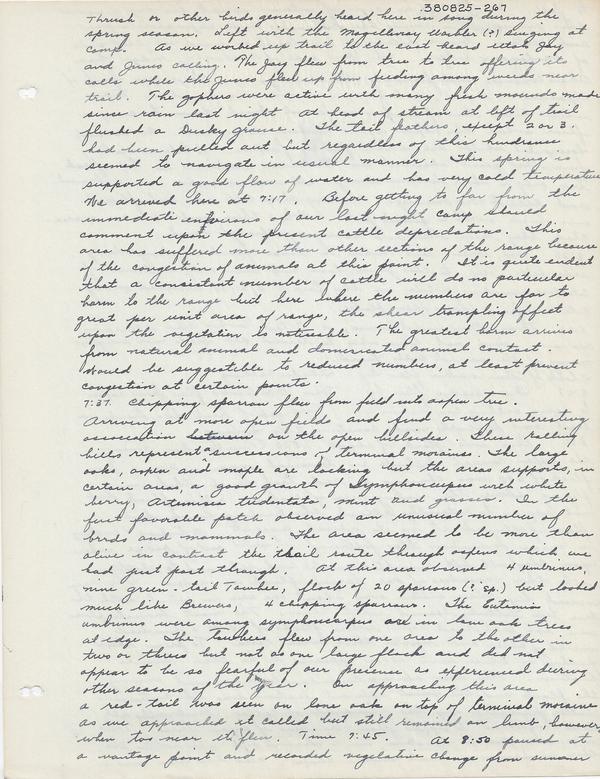 380825-267
Thrush or other birds generally heard here in song during the
spring season. Left with the Macgillivray Warbler (?) singing at
camp. As we worked up trail to the east heard Utah Jay
and Junco calling. The Jay flew from tree to tree offering its
calls while the Junco flew up from feeding among weeds near
trail. The gophers were active with many fresh mounds made
since rain last night. At head of stream at left of trail
flushed a Dusky grouse. The tail feathers, except 2 or 3.
had been pulled out but regardless of this hindrance
seemed to navigate in usual manner. This spring is
supported a good flow of water and has very cold temperature
We arrived here at 7:17. Before getting to far from the
immediate environs of our last night camp
comment upon the present cattle depredations. This
area has suffered more than other sections of the range because
of the congestion of animals at this point. It is quite evident
that a consistant number of cattle will do no particular
harm to the range but here where the numbers are far to
great per unit area of range, the shear trampling effect
upon the vegetation is noticeable. The greatest harm arrives
from natural animal and domesticated animal contact.
Would be suggestible to reduced numbers, at least prevent
congestion at certain points.
7:37. Chipping sparrow flew from field into aspen tree.
Arriving at more open fields and find a very interesting
association between on the open hillsides. These rolling
hills represent a successions of terminal moraines. The large
oaks, aspen and maple are lacking but the areas supports, in
certain areas, a good growth of Symphoricarpus with white
berry, Artemisia tridentata, mint and grasses. In the
first favorable patch observed an unusual number of
birds and mammals. The area seemed to be more than
alive in contrast the trail route through aspens which we
had just past through. At this area observed 4 umbrinus,
nine green-tail Towhee, flock of 20 sparrows (? sp.) but looked
much like Brewers, 4 chipping sparrows. The Eutamias
umbrinus were among symphoricarpus are in low oak trees
at edge. The Towhees flew from one area to the other in
twos or threes but not as one large flock and did not
appear to be so fearful of our presence as experienced during
other seasons of the year. On approaching this area
a red-tail was seen on lone oak on top of terminal moraine
as we approached it called but still remained on limb, however,
when too near it flew. Time 7:45. At 8:50 paused at
a vantage point and recorded vegetative change from summer